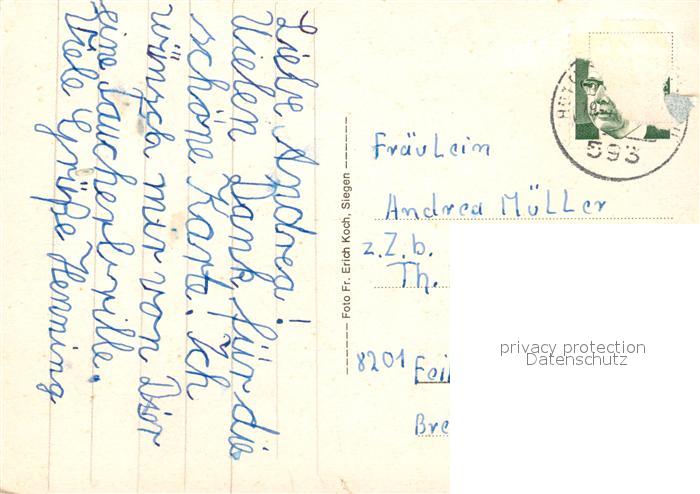 Liebe Andrea!
Vielen Dank, für die
schöne Karte. Ich
wünsch mir von Dir
eine Taucherbrille.
Viele Grüße Henning
Foto Fr. Erich Koch, Siegen
593
Fräulein
Andrea Müller
z.Z.b.
Th.
8201
privacy protection
Datenschutz